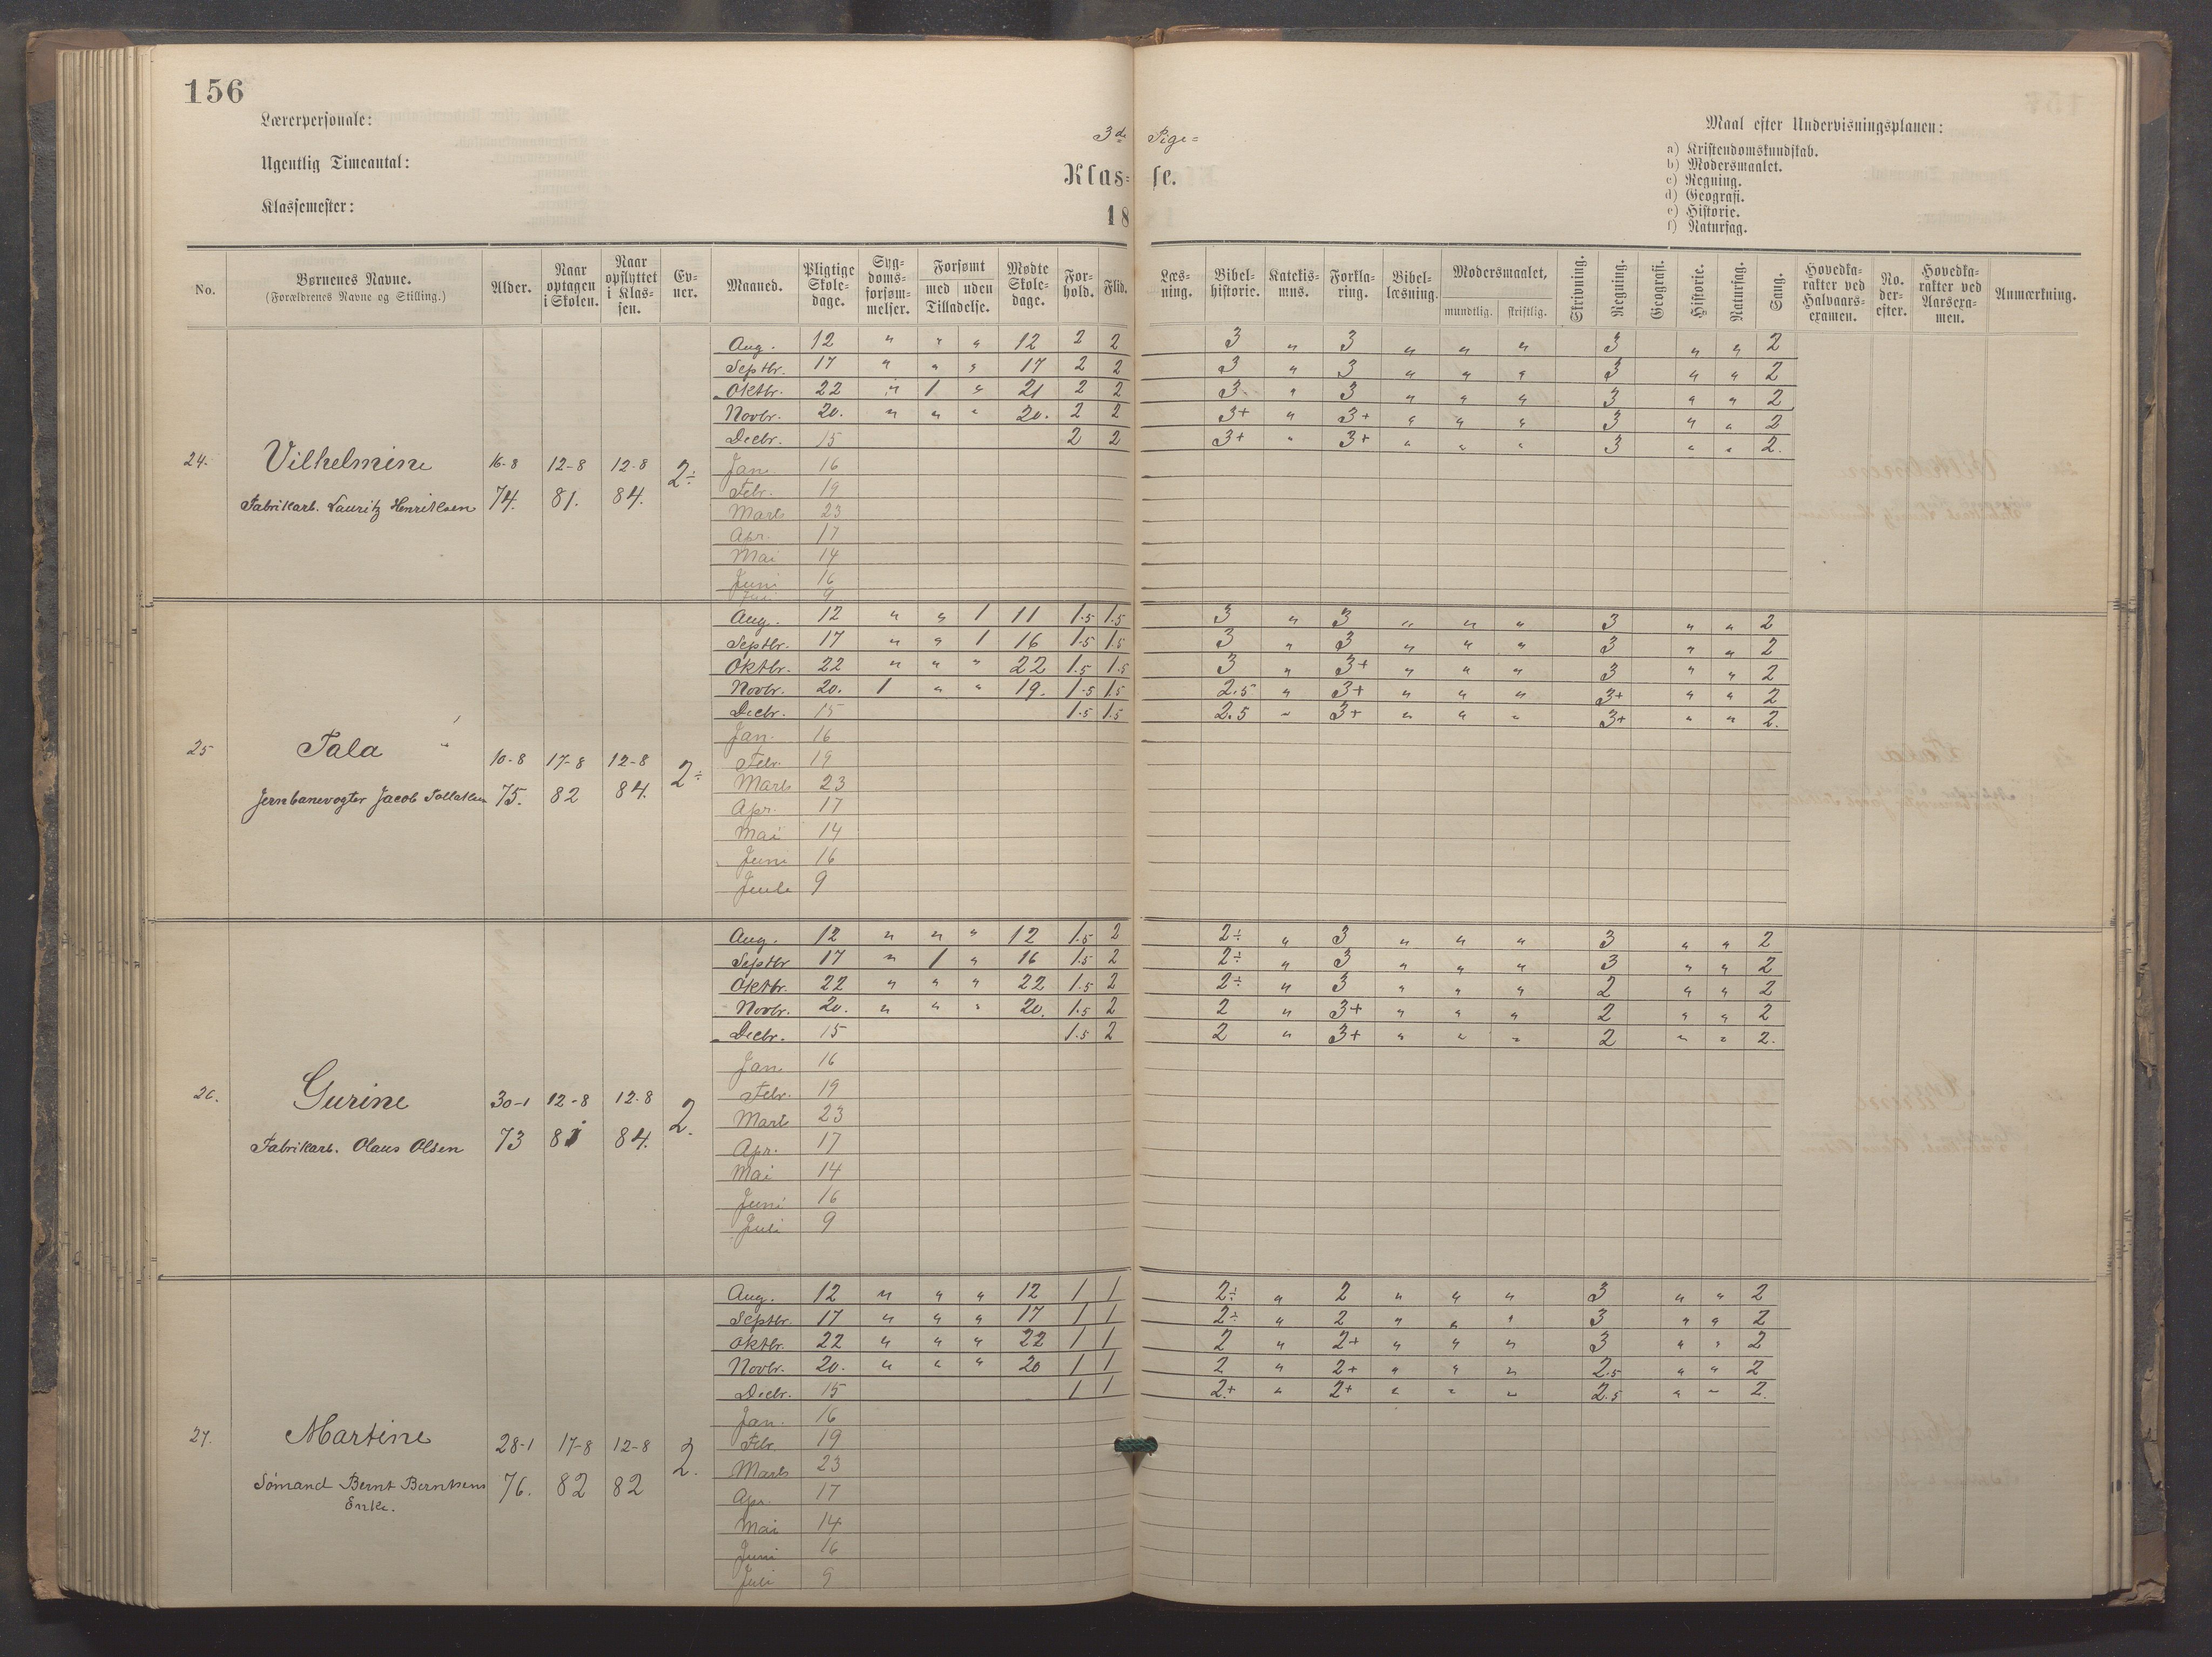 156
Lærerpersonale:
Ugentlig Timeantal:
Klassemester:
3de Pige=
Klas= se.
18
Maal efter Undervisningsplanen:
a) Kristendomskundskab.
b) Modersmaalet.
c) Regning.
d) Geografi.
e) Historie.
f) Naturfag.
No. Børnenes Navne. (Forældrenes Navne og Stilling.) Alder. Naar optagen i Skolen. Naar opflyttet i Klas-sen. Ev-ner. Maaned. Pligtige Skole-dage. Syg-doms-forsøm-melser. Forsømt med uden Tilladelse. Mødte Skole-dage. For-hold. Flid. Læs-ning. Bibel-historie. Katekis-mus. Forkla-ring. Bibel-læsning. Modersmaalet, mundtlig. skriftlig. Skrivning. Regning. Geografi. Historie. Naturfag. Sang. Hovedka-rakter ved Halvaars-examen. No. der-efter. Hovedka-rakter ved Aarsexa-men. Anmærkning.
Aug. 12 " " " 12 2 2 3 " 3 " " " 3 " " 2
Septbr. 17 " " " 17 2 2 3 " 3 " " " 3 " " 2
Oktbr. 22 " 1 " 21 2 2 3 " 3 " " " 3 " " 2
Novbr. 20. " " " 20. 2 2 3+ " 3+ " " " 3 " " 2
Decbr. 15 2 2 3+ " 3+ " " " 3 " " 2.
24. Vilhelmine 16-8 12-8 12-8 2÷
Fabrikarb. Lauritz Henriksen 74. 81. 84.
Jan. 16
Febr. 19
Marts 23
Apr. 17
Mai 14
Juni 16
Juli 9
Aug. 12 " " 1 11 1.5 1.5 3 " 3 " " " 3 " " 2
Septbr. 17 " " 1 16 1.5 1.5 3 " 3 " " " 3 " " 2
Oktbr. 22 " " " 22 1.5 1.5 3 " 3+ " " " 3 " " 2
Novbr. 20. 1 " " 19. 1.5 1.5 2.5 " 3+ " " " 3+ " " 2
Decbr. 15 1.5 1.5 2.5 " 3+ " " " 3+ " " 2.
25 Tala 10-8 17-8 12-8 2÷
Jernbanevogter Jacob Tollaksen 75. 82 84.
Jan. 16
Febr. 19
Marts 23
Apr. 17
Mai 14
Juni 16
9
Aug. 12 " " " 12 1.5 2 2÷ " 3 " " " 3 " " 2
Septbr 17 " 1 " 16 1.5 2 2÷ " 3 " " " 3 " " 2
Oktbr. 22 " " " 22 1.5 2 2÷ " 3 " " " 2 " " 2
Novbr. 20. " " " 20. 1.5 2 2 " 3+ " " " 2 " " 2
Decbr. 15 1.5 2 2 " 3+ " " " 2 " " 2.
26. Gurine 30-1 12-8 12-8 2.
Fabrikarb. Olaus Olsen 73 81 84.
Jan. 16
Febr. 19
Marts 23
Apr. 17
Mai 14
Juni 16
Juli 9
Aug. 12 " " " 12 1 1 2÷ " 2 " " " 3 " " 2
Septbr. 17 " " " 17 1 1 2÷ " 2 " " " 3 " " 2
Oktbr. 22 " " " 22 1 1 2 " 2+ " " " 3 " " 2
Novbr. 20. " " " 20 1 1 2 " 2+ " " " 2.5 " " 2
Decbr. 15 1 1 2+ " 2+ " " " 2.5 " " 2.
27. Martine 28-1 17-8 12-8 2.
Sømand Bernt Berntsens 76. 82 82
Enke.
Jan. 16
Febr. 19
Marts 23
Apr. 17
Mai 14
Juni 16
Juli 9